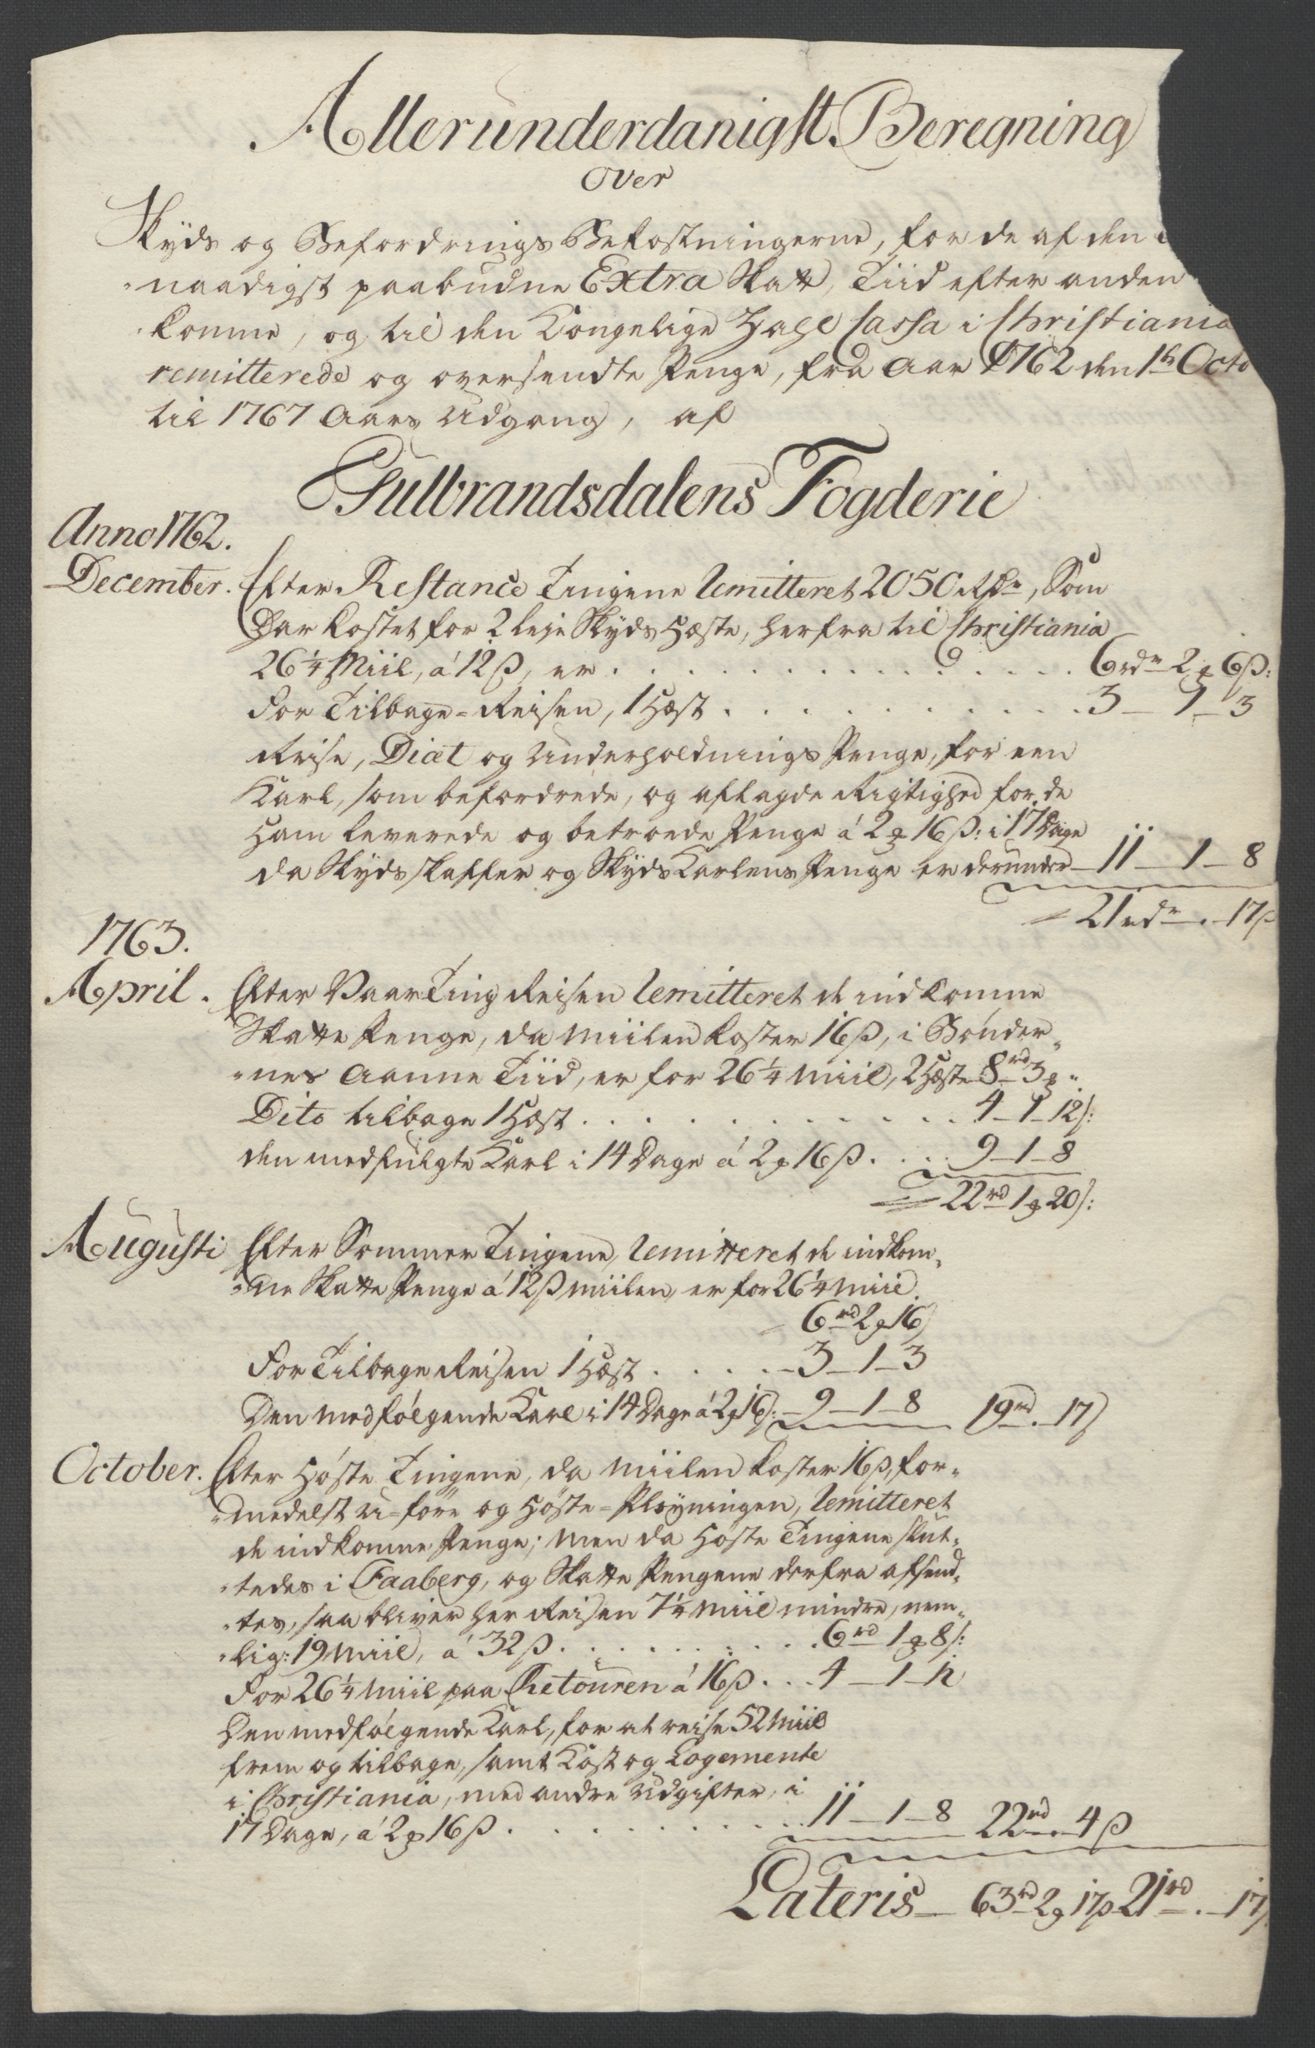 Allerunderdanigst Beregning
over
Skyds og Befordrings Bekostningerne, for de af den
naadigst paabudne Extra Skatt, Tiid efter anden
komne, og til den Kongelige Zahl Cassa i Christiania
remitterede og oversendte Penge, fra Aar 1762 den 1ste Octo
til 1767 Aars Udgang, af
Gulbrandsdalens Fogderie
Anno 1762.
December. Efter Restance Tingene remitteret 2050 rdr, Som
har kostet for 2 leje Skyds Hæste, herfra til Christiania
26 1/4 Miil, á 12 ß, er . . . . . 6 rdr 2 ꝗ 6 ß:
For Tilbage-Reisen, 1 Hæst . . . . . 3 - 1 - 3
Reise, Diæt og Underholdnings Penge, for een
Karl, som befordrede, og aflagde Rigtighed for de
Ham leverede og betroede Penge á 2 ꝗ 16 ß: i 17 Dage
da Skydsskaffer og Skyds Karlens Penge er derunder - 11 - 1 - 8
21 rdr . - 17 ß
1763.
April. Efter Vaar Ting Reisen remitteret de indkomne
Skatte Penge, da Miilen koster 16 ß, i Bønder-
nes Aanne Tiid, er for 26 1/4 Miil, 2 Hæste 8 rd 3 ꝗ "
Dito tilbage 1 Hæst . . . . . 4 - 1 - 12 ß:
den medfulgte Karl i 14 Dage á 2 ꝗ 16 ß . . . . 9 - 1 - 8
22 rd 1 ꝗ 20 ß:
Augusti Efter Sommer Tingene, remitteret de indkom-
ne Skatte Penge á 12 ß Miilen, er for 26 1/4 Miil.
6 rd 2 ꝗ 16 ß
For Tilbage Reisen 1 Hæst . . . . . 3 - 1 - 3
Den medfølgende Karl i 14 Dage á 2 ꝗ 16 ß: - 9 - 1 - 8 19 rd . 17 ß
October. Efter Høste Tingene, da Miilen koster 16 ß, for-
medelst U-føre og Høste-Pløyningen, remitteret
de indkomne Penge; men da Høste Tingene slut-
tedes i Faaberg, og Skatte Pengene derfra afsend-
tes, saa bliver her Reisen 7 1/4 Miil mindre, nem-
lig: 19 Miil, á 32 ß . . . . . 6 rd 1 ꝗ 8 ß:
For 26 1/4 Miil paa Retouren á 16 ß . . . 4 - 1 - 12
Den medfølgende Karl, for at reise 52 Miil
frem og tilbage, samt Kost og Logemente
i Christiania, med andre Udgifter, i
17 Dage, á 2 ꝗ 16 ß . . . . . 11 - 1 - 8 22 rd . 4 ß
Lateris - 63 rd 2 ꝗ 17 ß 21 rd . - 17 ß